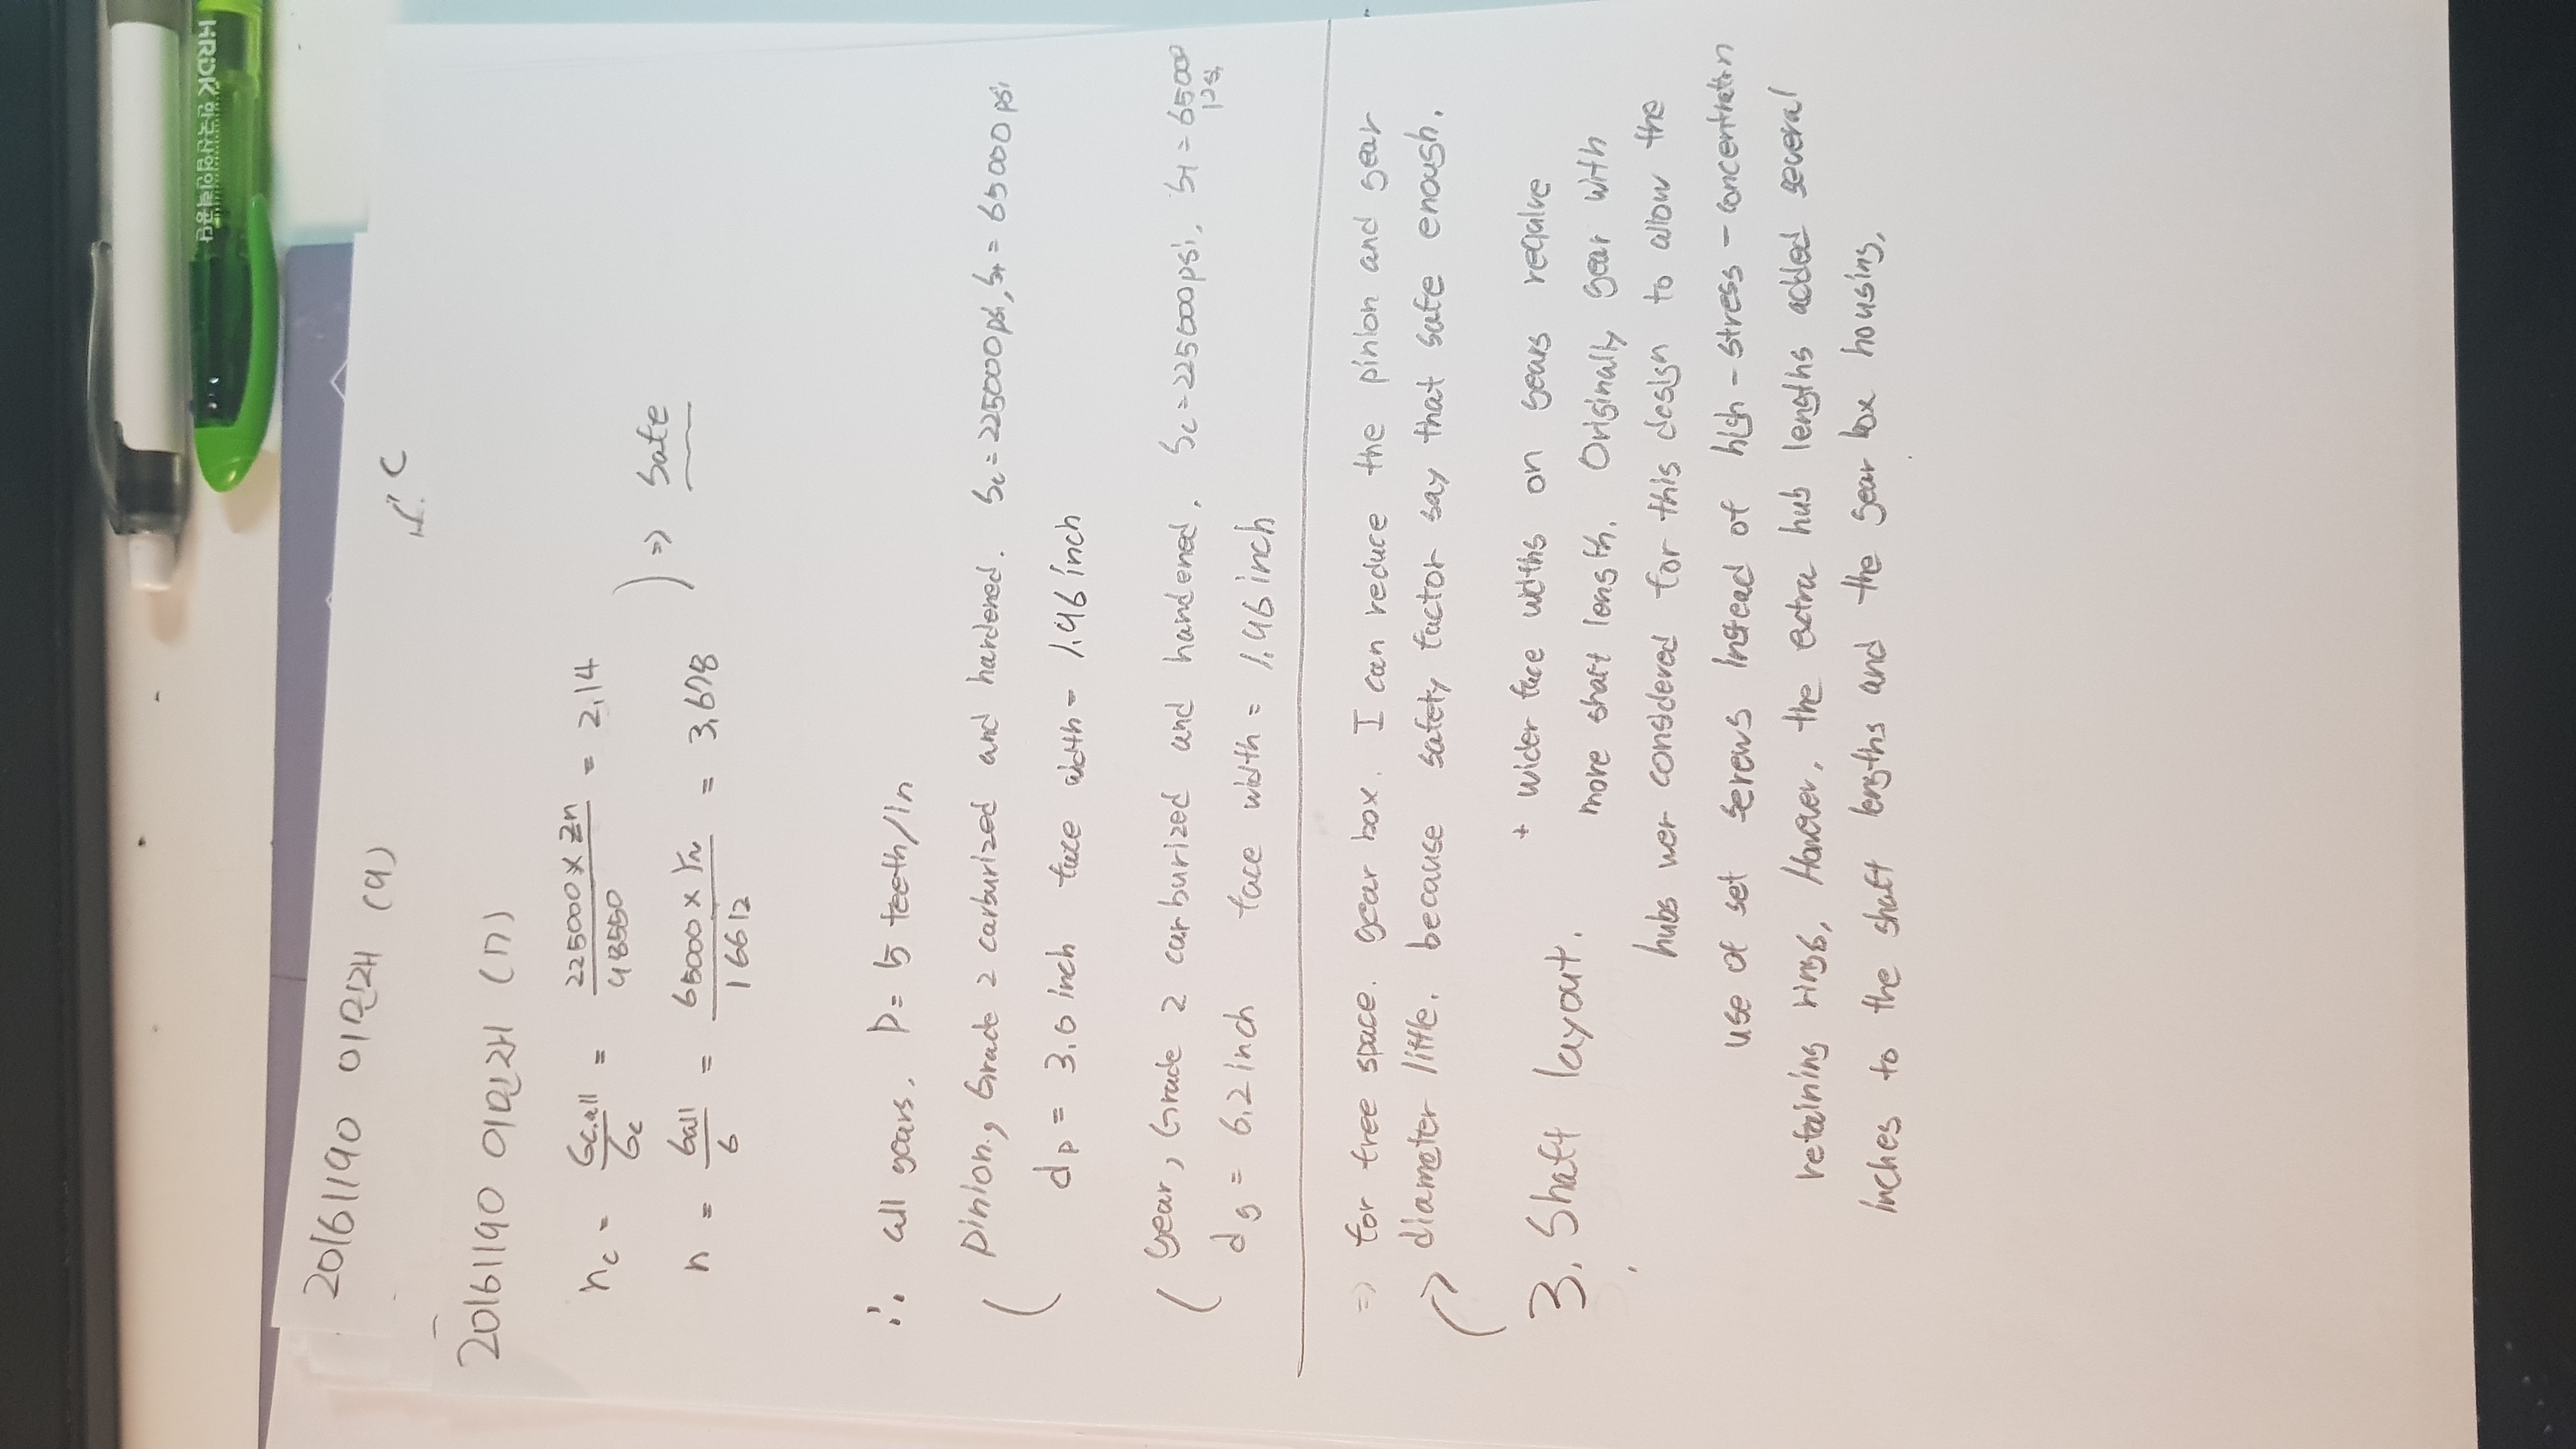 HRDK 한국산업인력공단
20161190 이민재 (9)
C
20161190 이민재 (7)
nc = σc,all / σc = 225000 × Zn / 98550 = 2.14
⇒ safe
n = σall / σ = 65000 × YN / 16612 = 3.678
∴ all gears. P = 5 teeth/in
pinion, Grade 2 carburized and hardened. Sc = 225000 psi, St = 65000 psi
dp = 3.0 inch face width = 1.96 inch
gear, Grade 2 carburized and hardened. Sc = 225000 psi, St = 65000 psi
dg = 6.2 inch face width = 1.96 inch
⇒ for free space. gear box. I can reduce the pinion and gear
diameter little. because safety factor say that safe enough.
3. Shaft layout.
+ wider face widths on gears require
more shaft length. Originally gear with
hubs wer considered for this design to allow the
use of set screws instead of high-stress-concentration
retaining rings, However, the extra hub lengths added several
inches to the shaft lengths and the gear box housing,